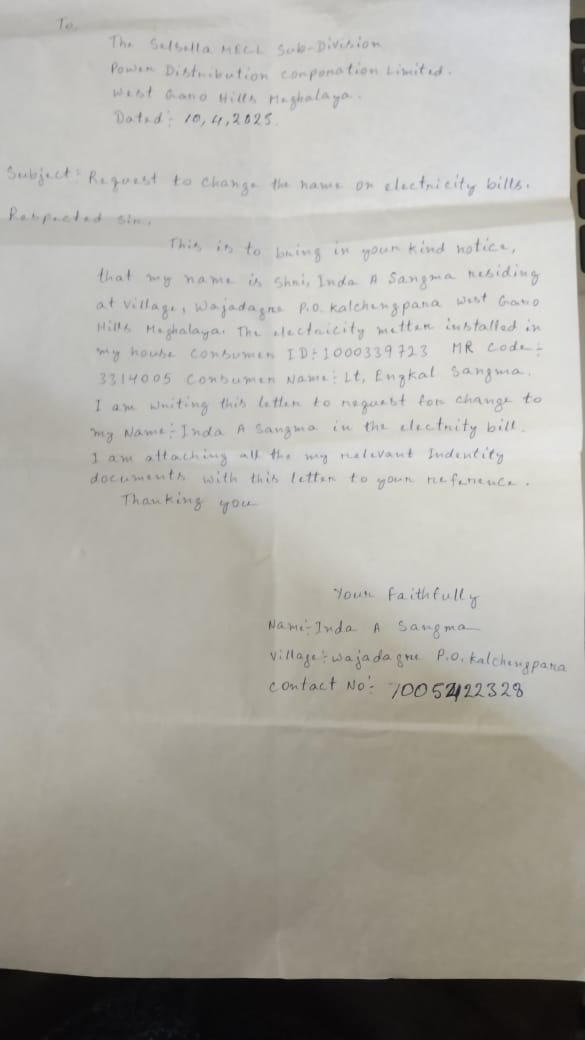 To,
The Selsella MECL Sub-Division
Power Distribution Corporation Limited.
West Garo Hills Meghalaya.
Dated:- 10,4,2025.
Subject:- Request to change the name on electricity bills.
Respected Sir,
This is to bring in your kind notice,
that my name is Shri, Inda A Sangma residing
at Village, Wajadagre P.O. Kalchengpara West Garo
Hills Meghalaya. The electricity metter installed in
my house Consumer ID:- 1000339723 MR Code:-
3314005 Consumer Name:- Lt, Engkal Sangma.
I am writing this letter to request for change to
my Name:- Inda A Sangma in the electnity bill.
I am attaching all the my relevant Indentity
documents with this letter to your reference.
Thanking you
Your Faithfully
Name:- Inda A Sangma
Village:- Wajadagre P.O. Kalchengpara
Contact No:-